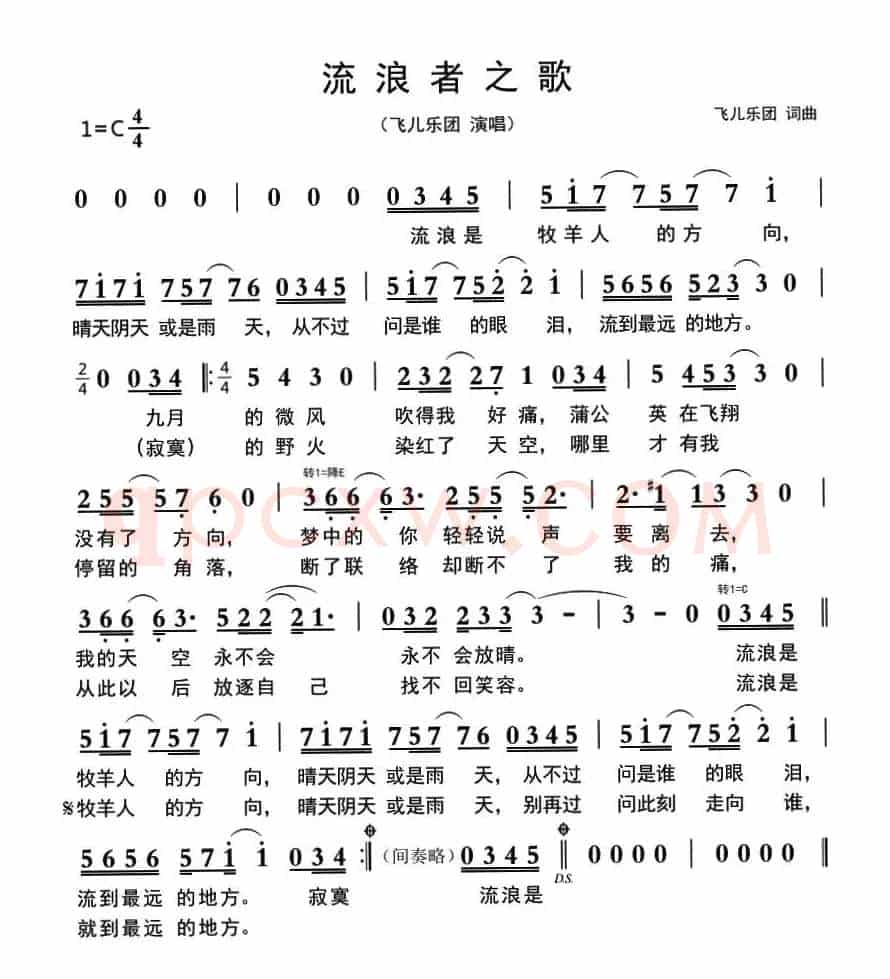 流浪者之歌
1=C 4/4
(飞儿乐团 演唱)
飞儿乐团 词曲
0 0 0 0 | 0 0 0 0345 | 5i7 757 7 i |
流浪是 牧羊人 的方 向,
7i7i 757 76 0345 | 5i7 752̇ 2̇ i | 5656 523 3 0 |
晴天阴天 或是雨 天, 从不过 问是谁 的眼 泪, 流到最远 的地方。
2/4 0 034 |: 4/4 5 4 3 0 | 232 27̣ 1 034 | 5 453 3 0 |
九月 的微风 吹得我 好痛, 蒲公 英在飞翔
(寂寞) 的野火 染红了 天空, 哪里 才有我
转1=降E
255 57̣ 6̣ 0 | 36̣6̣ 6̣3· 255 52· | 2· #1 13 3 0 |
没有了 方向, 梦中的 你 轻轻说 声 要离 去,
停留的 角落, 断了联 络 却断不 了 我的 痛,
转1=C
36̣6̣ 6̣3· 522 21· | 032 233 3 – | 3 – 0 0345 ‖
我的天 空 永不会 永不 会放晴。 流浪是
从此以 后 放逐自 己 找不 回笑容。 流浪是
5i7 757 7 i | 7i7i 757 76 0345 | 5i7 752̇ 2̇ i |
牧羊人 的方 向, 晴天阴天 或是雨 天, 从不过 问是谁 的眼 泪,
𝄋牧羊人 的方 向, 晴天阴天 或是雨 天, 别再过 问此刻 走向 谁,
5656 57i i 034 :‖ (间奏略) 0345 ‖ 0000 | 0000 ‖
D.S.
流到最远 的地方。 寂寞 流浪是
就到最远 的地方。
qpcxw.COM